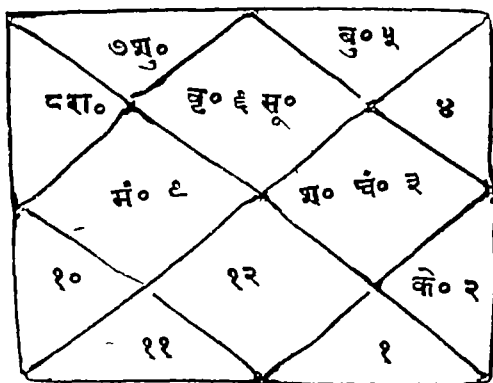 ७शु० बु० ५
८श० बृ० ६ सू० ४
मं० ९ भ० चं० ३
१० १२ के० २
११ १